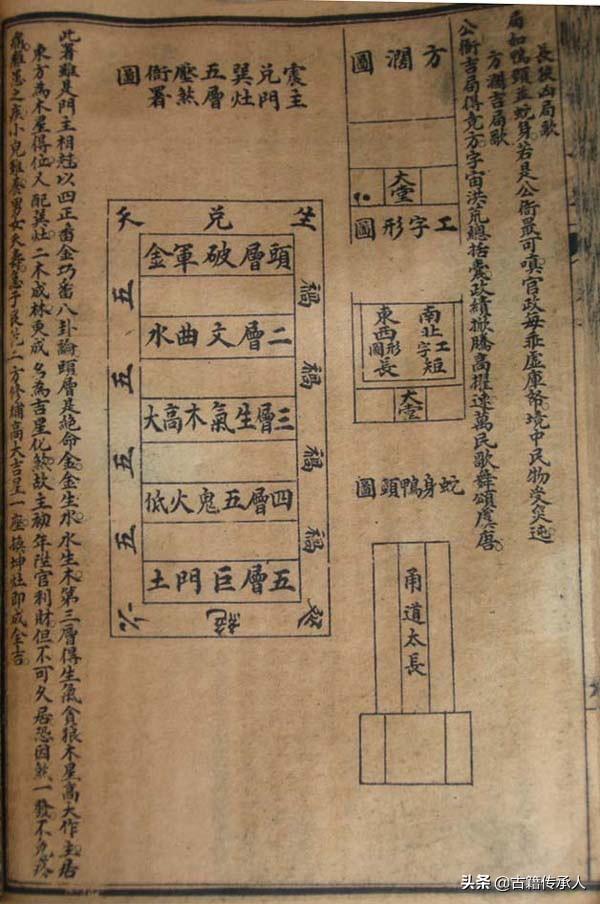 長狹凶局歌
局如鴨頭並蛇身若是公衙最可嗔官政每乖虛庫帑境中民物受災迍
方濶吉局歌
公衙吉局得寬方宇宙洪荒總括囊政績掀騰高擢速萬民歌舞頌虞唐
方濶圖
大堂
工字形圖
南北工字短
東西圖形長
大堂
蛇身鴨頭圖
甬道太長
震主
兌門
巽灶
五層
壓煞
衙署
圖
坐兌天
頭層破軍金
二層文曲水
三層生氣木高大
四層五鬼火低
五層巨門土
禍
禍
禍
禍
五
五
五
五
延絕六
此署雖是門主相尅以四正番金巧番八卦論頭層是絕命金金生水水生木第三層得生氣貪狼木星高大作主居
東方為木星得位又配巽灶二木成林更成名為吉星化煞故主初年陞官利財但不可久居恐因煞一發不免疼
病難恙之疾小兒難養男女夭壽急于艮兌二方修補高大吉星一座換坤灶即成全吉
头条@古籍传承人